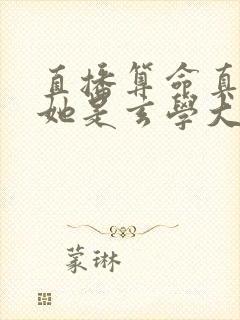 直播算命真
她是玄學大
蒙琳